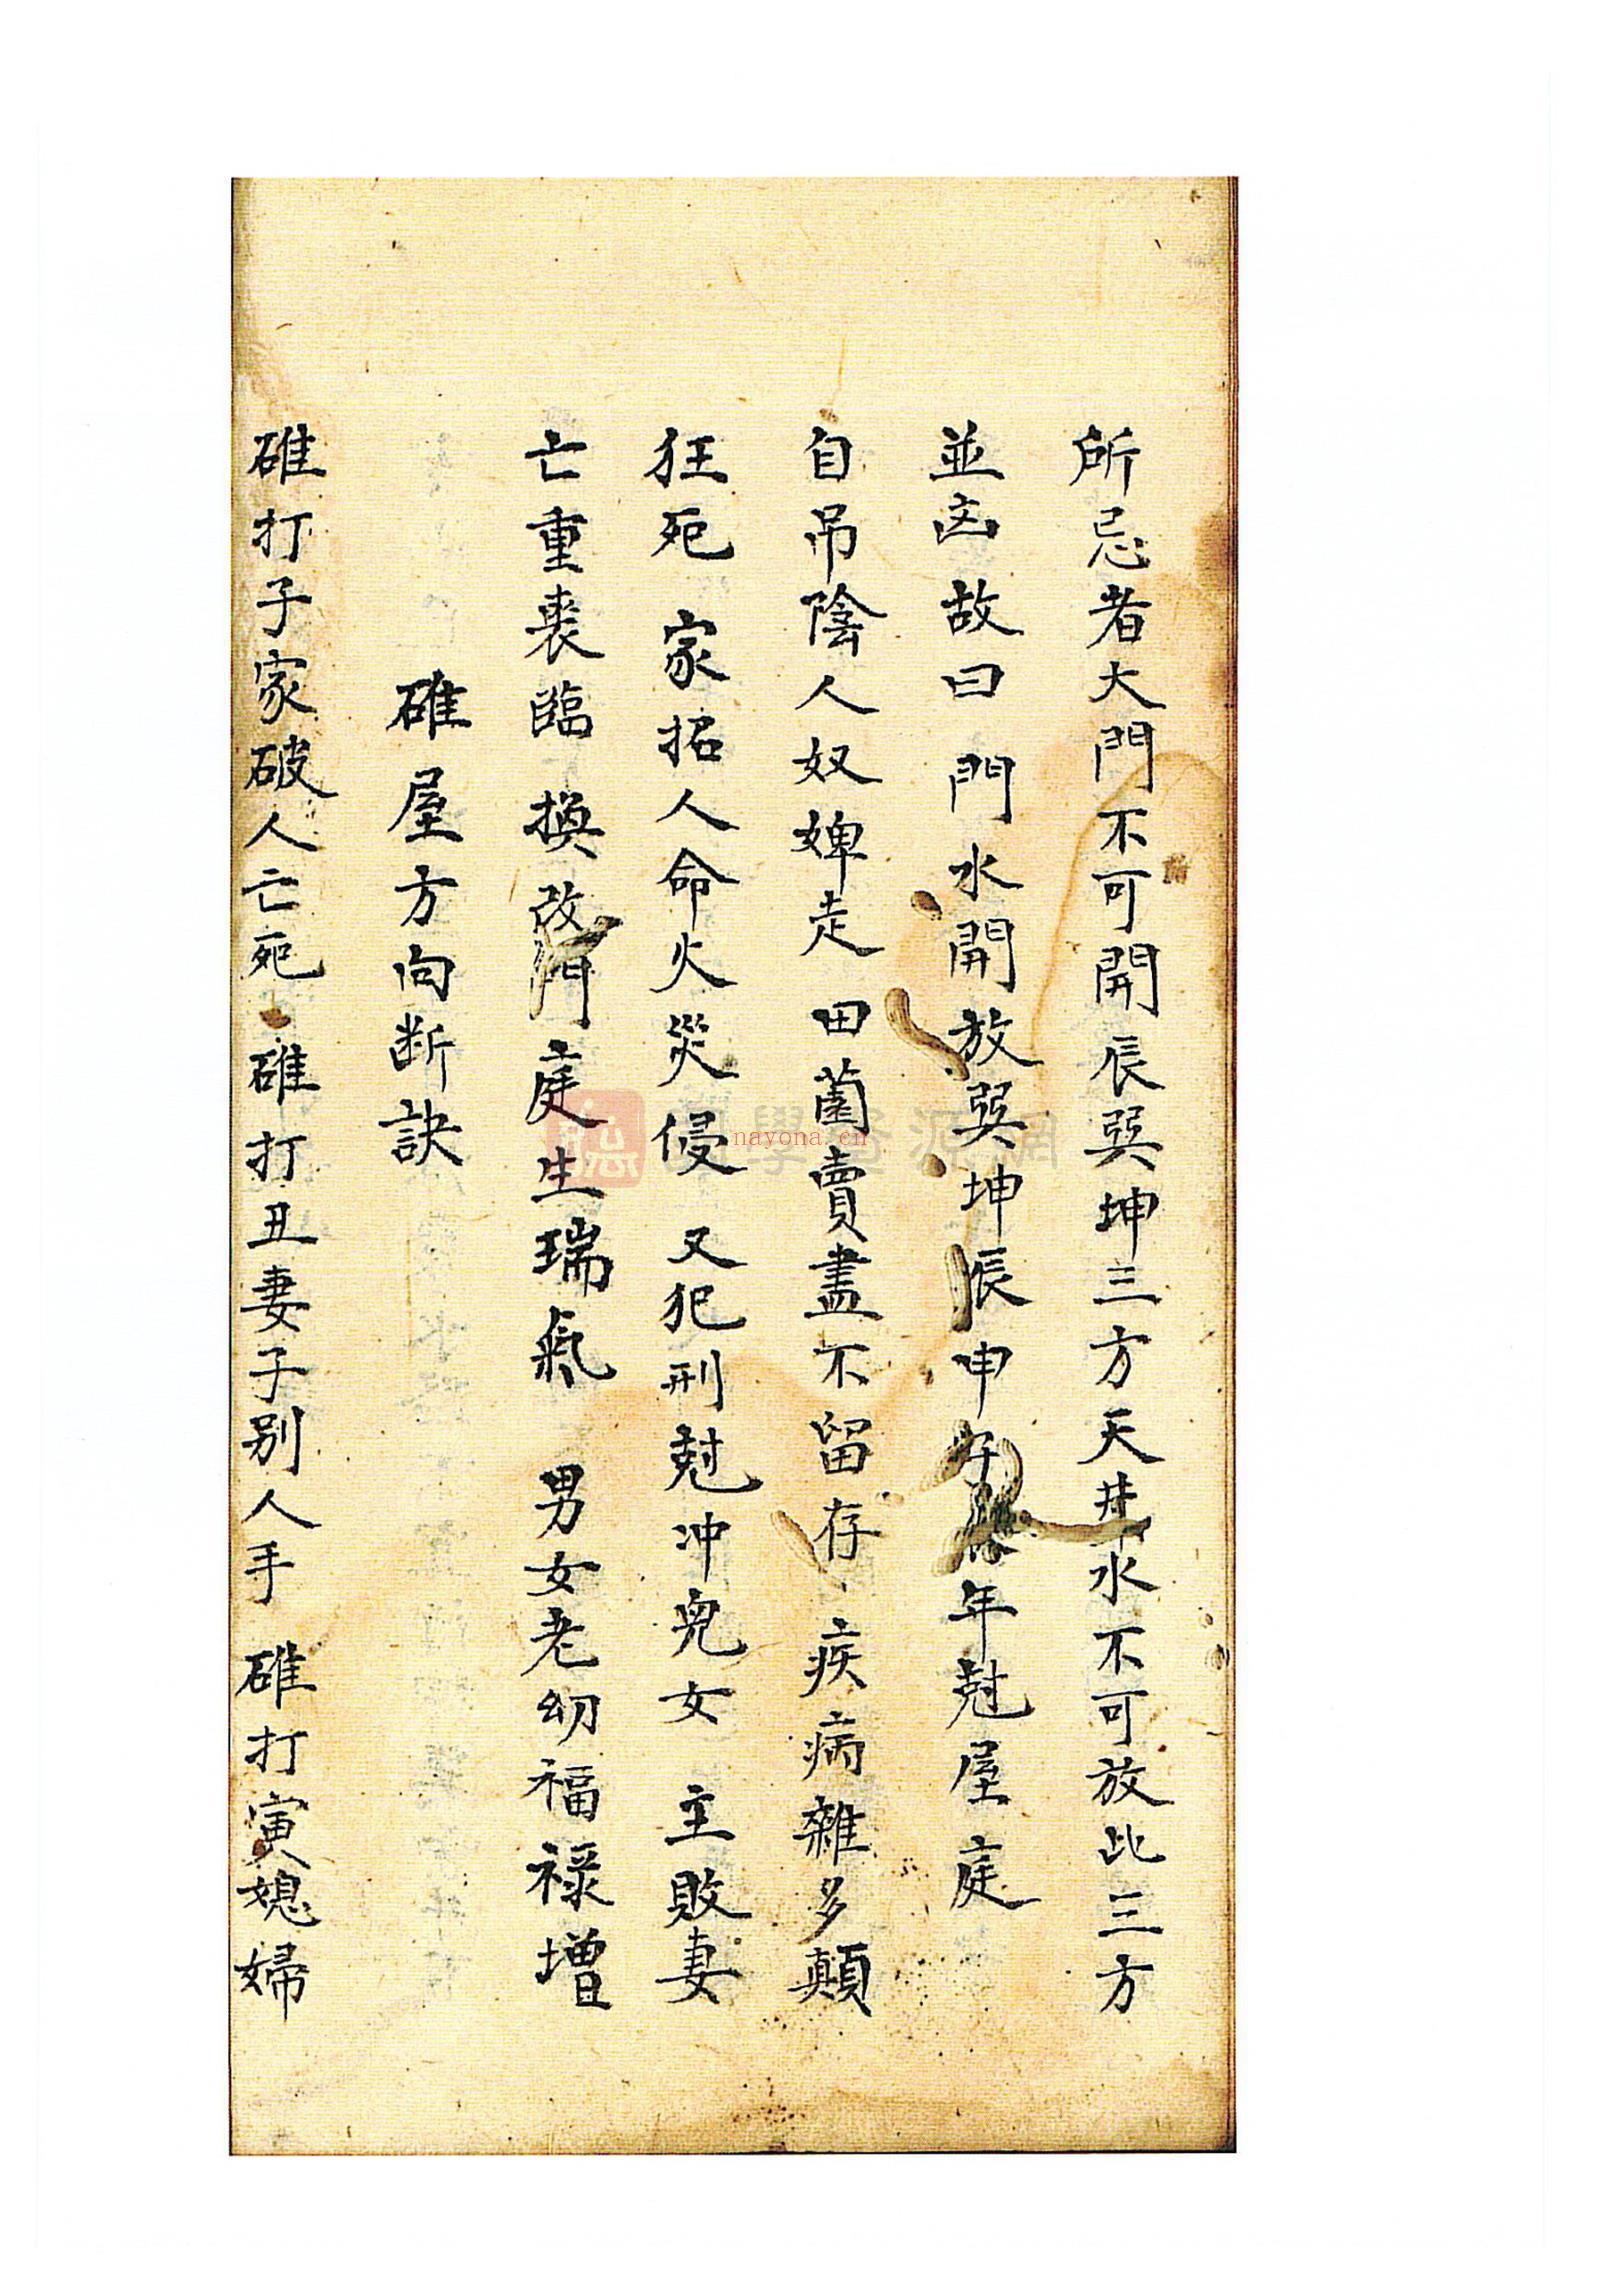 所忌者大門不可開辰巽坤三方天井水不可放此三方
並凶故曰 門水開放巽坤辰申年尅屋庭
自吊陰人奴婢走 田園賣盡不留存 疾病雜多顛
狂死 家招人命火災侵 又犯刑尅冲兒女 主敗妻
亡重喪臨 換改門庭生瑞氣 男女老幼福祿增
碓屋方向断訣
碓打子家破人亡死 碓打丑妻子别人手 碓打寅媳婦
國學資源網
nayona.cn